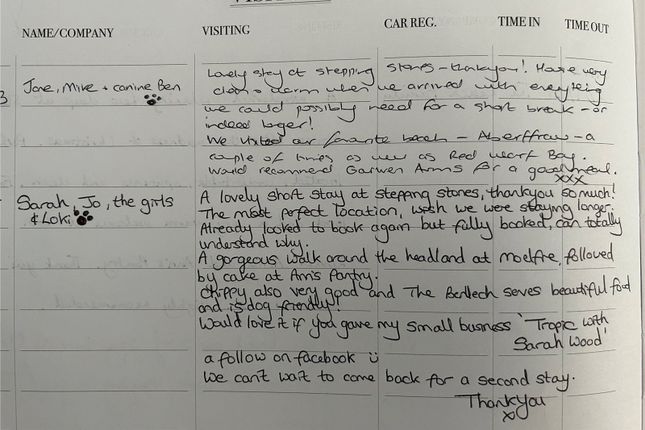 NAME/COMPANY VISITING CAR REG. TIME IN TIME OUT
Jane, Mike + canine Ben
Lovely stay at stepping stones - thankyou! House very
clean & warm when we arrived with everything
we could possibly need for a short break - or
indeed longer!
We visited our favourite beach - Aberffraw - a
couple of times as well as Red Wharf Bay.
Would recommend Garwen Arms for a good meal.
xxx
Sarah, Jo, the girls
& Loki
A lovely short stay at stepping stones, thankyou so much!
The most perfect location, wish we were staying longer.
Already looked to book again but fully booked, can totally
understand why.
A gorgeous walk around the headland at moelfre, followed
by cake at Ann's Pantry.
Chippy also very good and The Bellech serves beautiful food
and is dog friendly!
Would love it if you gave my small business 'Tropic with
Sarah Wood'
a follow on facebook ü
We can't wait to come back for a second stay.
Thankyou
x